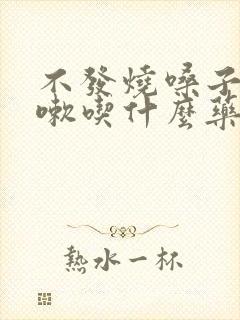 不發燒嗓子
嗽喫什麼藥
熱水一杯